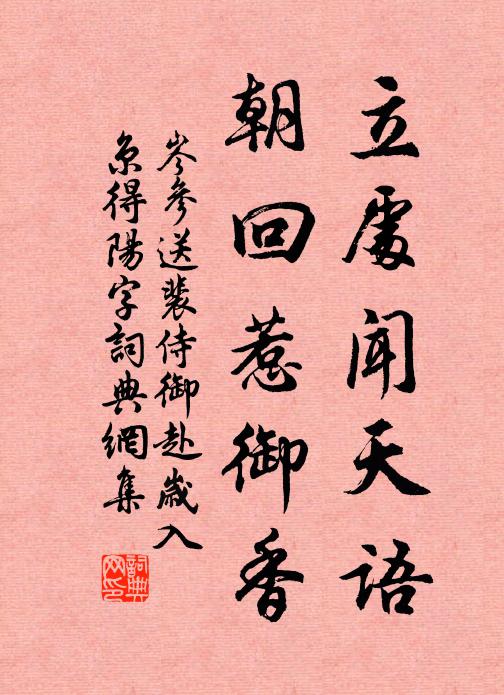 立處聞天語
朝回惹御香
岑參送裴侍御赴歲入
京得陽字詞典網集
詞典
网印